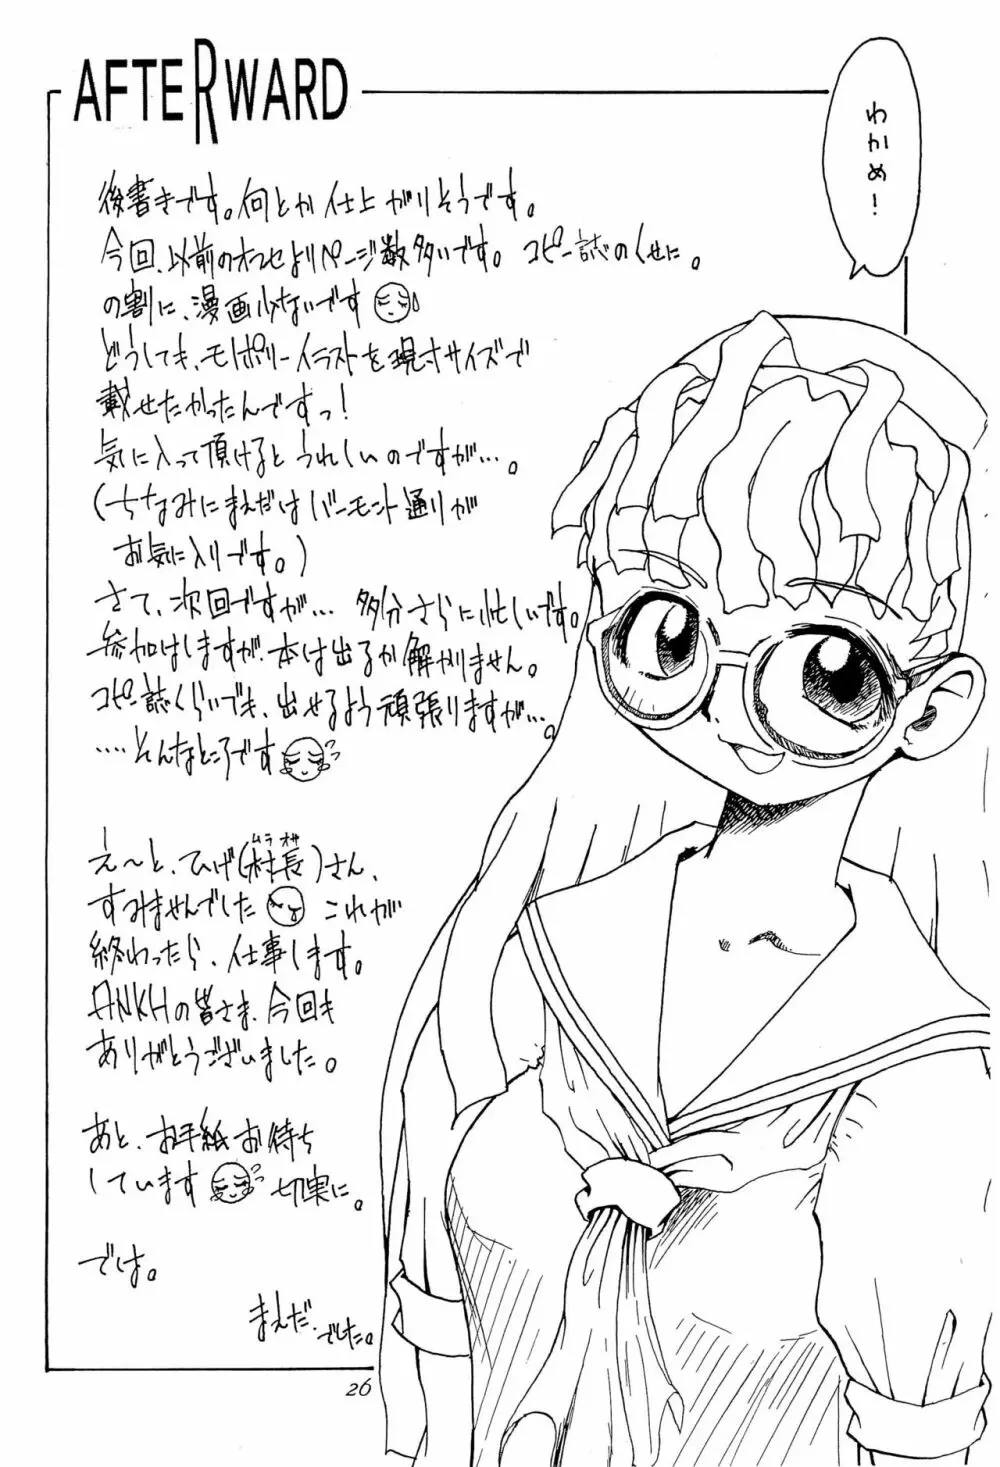 AFTERWARD
わかめ!
後書きです。何とか仕上がりそうです。
今回、以前のオフセよりページ数多いです。コピー誌のくせに。
の割に、漫画少ないです
どうしても、モノポリーイラストを現寸サイズで
載せたかったんですっ!
気に入って頂けるとうれしいのですが…。
(ちなみにまえだはバーモント通りが
お気に入りです。)
さて、次回ですが… 多分さらに忙しいです。
参加はしますが、本は出るか解かりません。
コピー誌くらいでも、出せるよう頑張りますが…。
‥‥そんなところです
え〜と、ひげ(村長)さん、
ムラオサ
すみませんでした これが
終わったら、仕事します。
ANKHの皆さま、今回も
ありがとうございました。
あと、お手紙お待ち
しています 切実に。
では。
まえだ.でした。
26